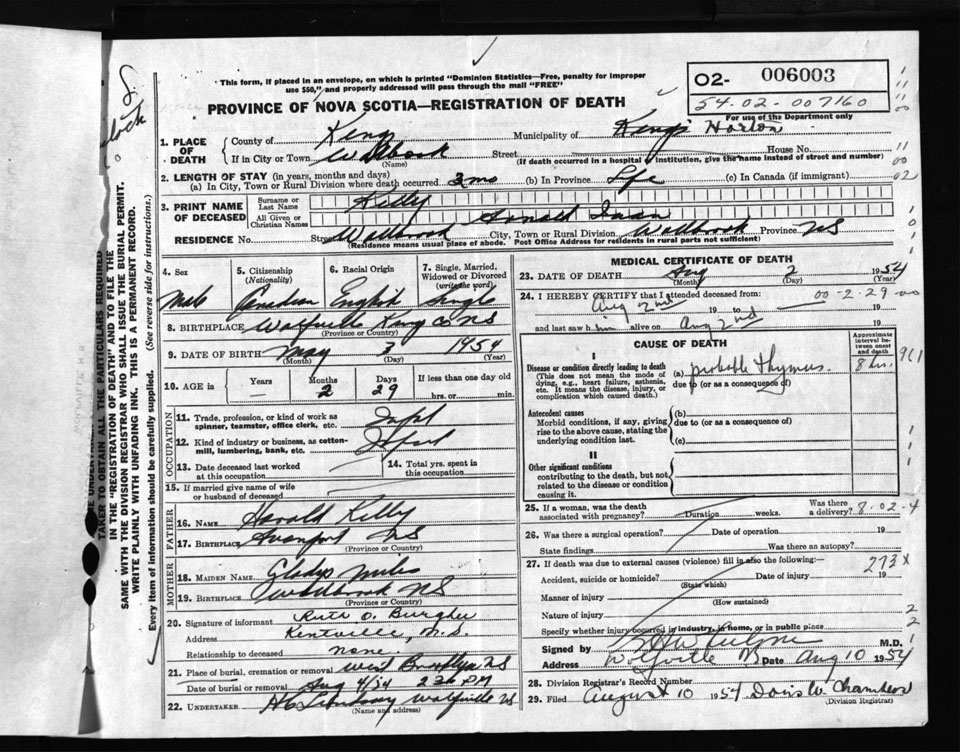 This form, if placed in an envelope, on which is printed "Dominion Statistics—Free, penalty for improper
use $50," and properly addressed will pass through the mail "FREE"
PROVINCE OF NOVA SCOTIA—REGISTRATION OF DEATH
02- 006003
54-02-007160
For use of the Department only
1. PLACE OF DEATH
County of Kings Municipality of Kings Horton
If in City or Town Wallbrook Street House No.
(Name) (If death occurred in a hospital or institution, give the name instead of street and number)
2. LENGTH OF STAY (in years, months and days)
(a) In City, Town or Rural Division where death occurred 3 mo (b) In Province Life (c) In Canada (if immigrant)
3. PRINT NAME OF DECEASED
Surname or Last Name Kelly
All Given or Christian Names Donald
RESIDENCE No. Street Wallbrook City, Town or Rural Division Wallbrook Province NS
(Residence means usual place of abode. Post Office Address for residents in rural parts not sufficient)
4. Sex Male
5. Citizenship (Nationality) Canadian
6. Racial Origin English
7. Single, Married, Widowed or Divorced (write the word) Single
8. BIRTHPLACE Wolfville Kings Co NS
(Province or Country)
9. DATE OF BIRTH May 3 1954
(Month) (Day) (Year)
10. AGE in Years — Months 2 Days 29 If less than one day old hrs. or min.
OCCUPATION
11. Trade, profession, or kind of work as spinner, teamster, office clerk, etc. Infant
12. Kind of industry or business, as cotton-mill, lumbering, bank, etc. Infant
13. Date deceased last worked at this occupation
14. Total yrs. spent in this occupation
15. If married give name of wife or husband of deceased
FATHER
16. NAME Harold Kelly
17. BIRTHPLACE Avonport NS
(Province or Country)
MOTHER
18. MAIDEN NAME Gladys Miles
19. BIRTHPLACE Wallbrook NS
(Province or Country)
20. Signature of informant Ruth O.
Address Kentville, N.S.
Relationship to deceased none.
21. Place of burial, cremation or removal West Brooklyn NS
Date of burial or removal Aug 4/54 2 30 PM
22. UNDERTAKER Lindsay Wolfville NS
(Name and address)
MEDICAL CERTIFICATE OF DEATH
23. DATE OF DEATH Aug 2 1954
(Month) (Day) (Year)
24. I HEREBY CERTIFY that I attended deceased from: 00-2-29-00
Aug 2nd 19 to 19
and last saw him alive on Aug 2nd 19
CAUSE OF DEATH
Approximate interval between onset and death
I
Disease or condition directly leading to death
(This does not mean the mode of dying, e.g., heart failure, asthenia, etc. It means the disease, injury, or complication which caused death.)
(a) probable Thymus. 8 hrs.
due to (or as a consequence of)
Antecedent causes
Morbid conditions, if any, giving rise to the above cause, stating the underlying condition last.
(b)
due to (or as a consequence of)
(c)
II
Other significant conditions
contributing to the death, but not related to the disease or condition causing it.
25. If a woman, was the death associated with pregnancy? Duration weeks. Was there a delivery?
8-02-4
26. Was there a surgical operation? Date of operation 19
State findings Was there an autopsy?
27. If death was due to external causes (violence) fill in also the following:—
273 x
Accident, suicide or homicide? Date of injury 19
(State which)
Manner of injury
(How sustained)
Nature of injury
Specify whether injury occurred in industry, in home, or in public place
Signed by M.D.
Address Wolfville Date Aug 10 1954
28. Division Registrar's Record Number
29. Filed August 10 1954 Doris W. Chambers
(Division Registrar)
TAKER TO OBTAIN ALL THE PARTICULARS REQUIRED
IN THE "REGISTRATION OF DEATH" AND TO FILE THE
SAME WITH THE DIVISION REGISTRAR WHO SHALL ISSUE THE BURIAL PERMIT.
WRITE PLAINLY WITH UNFADING INK. THIS IS A PERMANENT RECORD.
Every item of information should be carefully supplied. (See reverse side for instructions.)